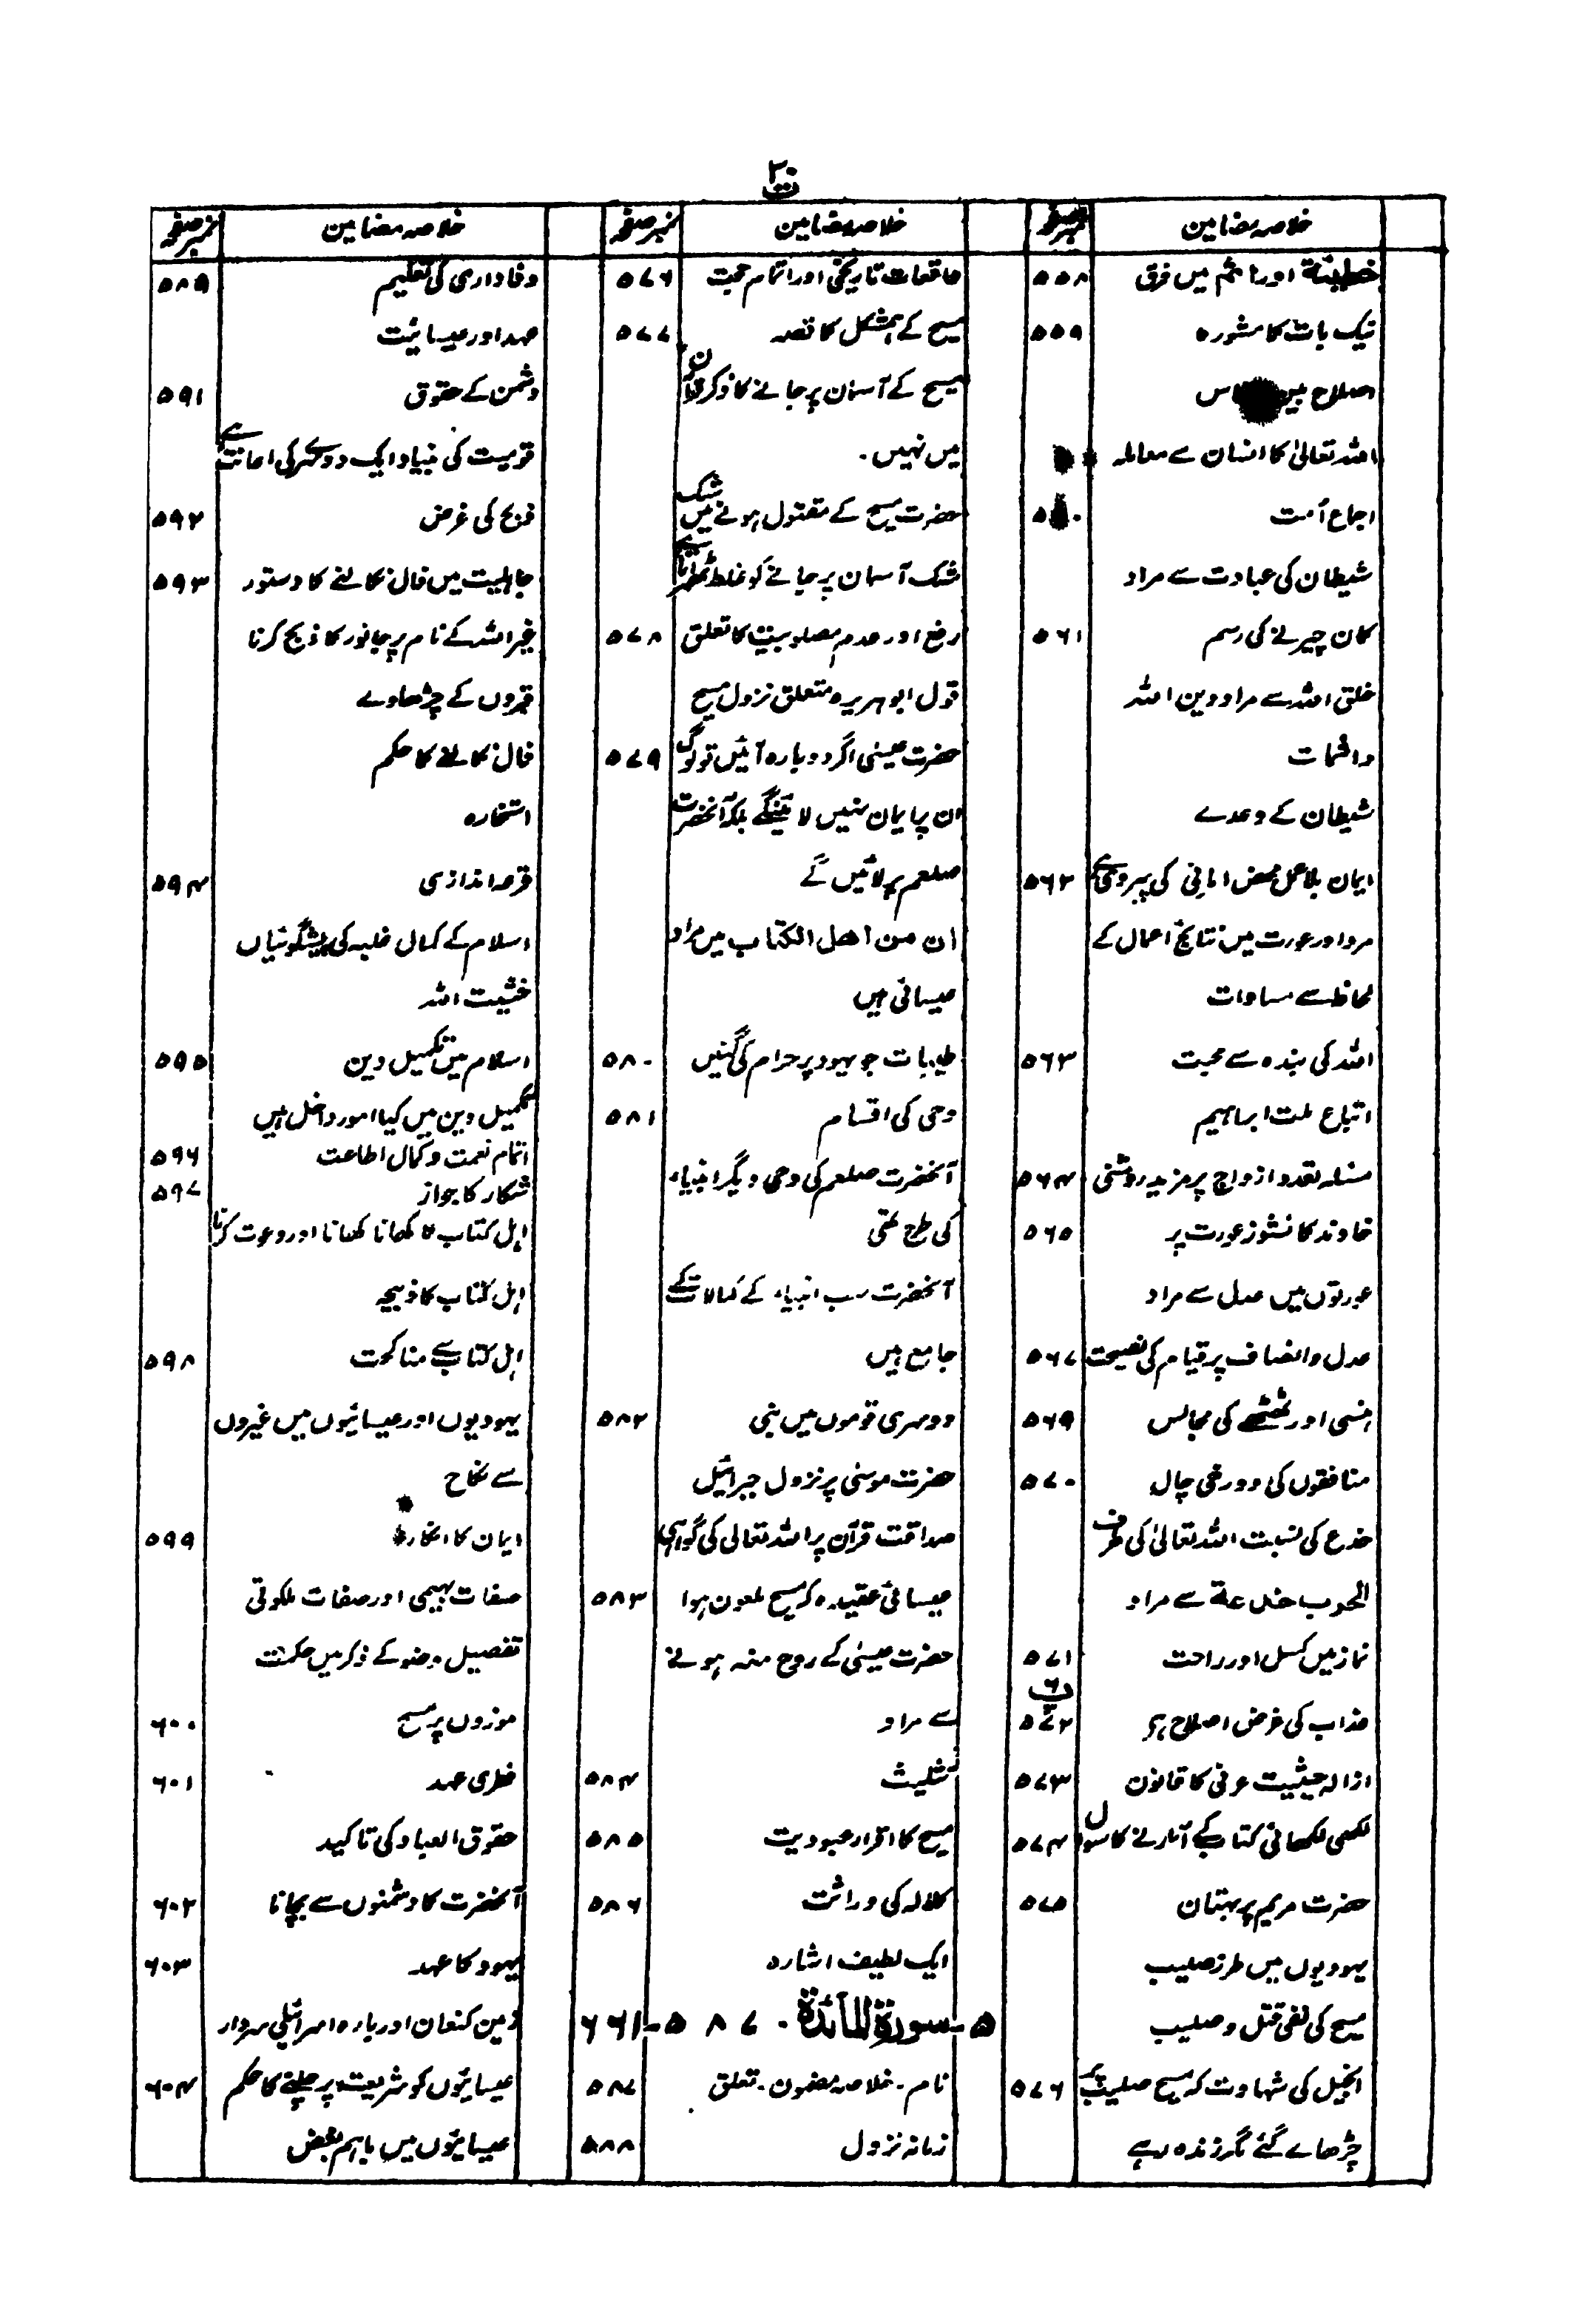 ت ۲۰
خلاصہ مضامین نمبر صفحہ
خطیئۃ اور اثم میں فرق ۵۵۸
نیک بات کا مشورہ ۵۵۹
اصلاح بین
اللہ تعالیٰ کا انسان سے معاملہ
اجماع اُمت
شیطان کی عبادت سے مراد
کان چیرنے کی رسم ۵۶۱
خلق اللہ سے مراد دین اللہ
واشمات
شیطان کے وعدے
ایمان بلا عمل محض امانی کی پیروی ہے ۵۶۲
مرد اور عورت میں نتایج اعمال کے
لحاظ سے مساوات
اللہ کی بندہ سے محبت ۵۶۳
اتباع ملت ابراہیم
مسئلہ تعدد ازواج پر مزید روشنی ۵۶۴
خاوند کا نشوز عورت پر ۵۶۵
عورتوں میں عدل سے مراد
عدل و انصاف پر قیام کی نصیحت ۵۶۷
ہنسی اور ٹھٹھے کی مجالس ۵۶۹
منافقوں کی دو رخی چال ۵۷۰
خدع کی نسبت اللہ تعالیٰ کی طرف
الحرب خدعۃ سے مراد
نماز میں کسل اور راحت ۵۷۱
عذاب کی غرض اصلاح ہے ۵۷۲
ازالہ حیثیت عرفی کا قانون ۵۷۳
لکھی لکھائی کتاب کے اتارنے کا سوال ۵۷۴
حضرت مریم پر بہتان ۵۷۵
یہودیوں میں طرز صلیب
مسیح کی نفی قتل و صلیب
انجیل کی شہادت کہ مسیح صلیب پر ۵۷۶
چڑھائے گئے مگر زندہ رہے
خلاصہ مضامین نمبر صفحہ
واقعات تاریخی اور اتمام حجت ۵۷۶
مسیح کے ہمشکل کا قصہ ۵۷۷
مسیح کے آسمان پر جانے کا ذکر قرآن
میں نہیں۔
حضرت مسیح کے مقتول ہونے میں شک
شک آسمان پر جانے کو غلط ٹھہراتا ہے
رفع اور عدم مصلوبیت کا تعلق ۵۷۸
قول ابوہریرہ متعلق نزول مسیح
حضرت عیسیٰ اگر دوبارہ آئیں تو لوگ ۵۷۹
ان پر ایمان نہیں لائینگے بلکہ آنحضرت
صلعم پر لائیں گے
ان من اھل الکتاب میں مراد
عیسائی ہیں
طیبات جو یہود پر حرام کی گئیں ۵۸۰
وحی کی اقسام ۵۸۱
آنحضرت صلعم کی وحی دیگر انبیاء
کی طرح تھی
آنحضرت سب انبیاء کے کمالات کے
جامع ہیں
دوسری قوموں میں نبی ۵۸۲
حضرت موسیٰ پر نزول جبرائیل
صداقت قرآن پر اللہ تعالیٰ کی گواہی
عیسائی عقیدہ کہ مسیح ملعون ہوا ۵۸۳
حضرت عیسیٰ کے روح منہ ہونے
سے مراد
تثلیث ۵۸۴
مسیح کا اقرار عبودیت ۵۸۵
کلالہ کی وراثت ۵۸۶
ایک لطیف اشارہ
۵-سورۃ المآئدۃ ۵۸۷-۶۶۱
نام۔ خلاصہ مضمون۔ تعلق ۵۸۷
زمانہ نزول ۵۸۸
خلاصہ مضامین نمبر صفحہ
وفاداری کی تعلیم ۵۸۹
عہد اور عیسائیت
دشمن کے حقوق ۵۹۱
قومیت کی بنیاد ایک دوسرے کی اعانت ہے
ذبح کی غرض ۵۹۲
جاہلیت میں فال نکالنے کا دستور ۵۹۳
غیر اللہ کے نام پر جانور کا ذبح کرنا
قبروں کے چڑھاوے
فال نکالنے کا حکم
استخارہ
قرعہ اندازی ۵۹۴
اسلام کے کمال غلبہ کی پیشگوئیاں
خشیت اللہ
اسلام میں تکمیل دین ۵۹۵
تکمیل دین میں کیا امور داخل ہیں
اتمام نعمت و کمال اطاعت ۵۹۶
شکار کا جواز ۵۹۷
اہل کتاب کا کھانا کھانا اور دعوت کرنا
اہل کتاب کا ذبیحہ
اہل کتاب سے مناکحت ۵۹۸
یہودیوں اور عیسائیوں میں غیروں
سے نکاح
ایمان کا انکار ۵۹۹
صفات بہیمی اور صفات ملکوتی
تفصیل وضو کے ذکر میں حکمت
موزوں پر مسح ۶۰۰
فطری عہد ۶۰۱
حقوق العباد کی تاکید
آنحضرت کا دشمنوں سے بچانا ۶۰۲
یہود کا عہد ۶۰۳
زمین کنعان اور بارہ اسرائیلی سردار
عیسائیوں کو شریعت پر چلنے کا حکم ۶۰۴
عیسائیوں میں باہم بغض